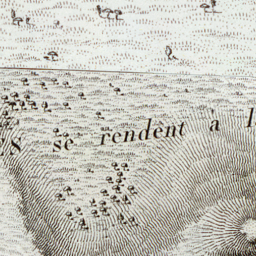 s se rendent à l